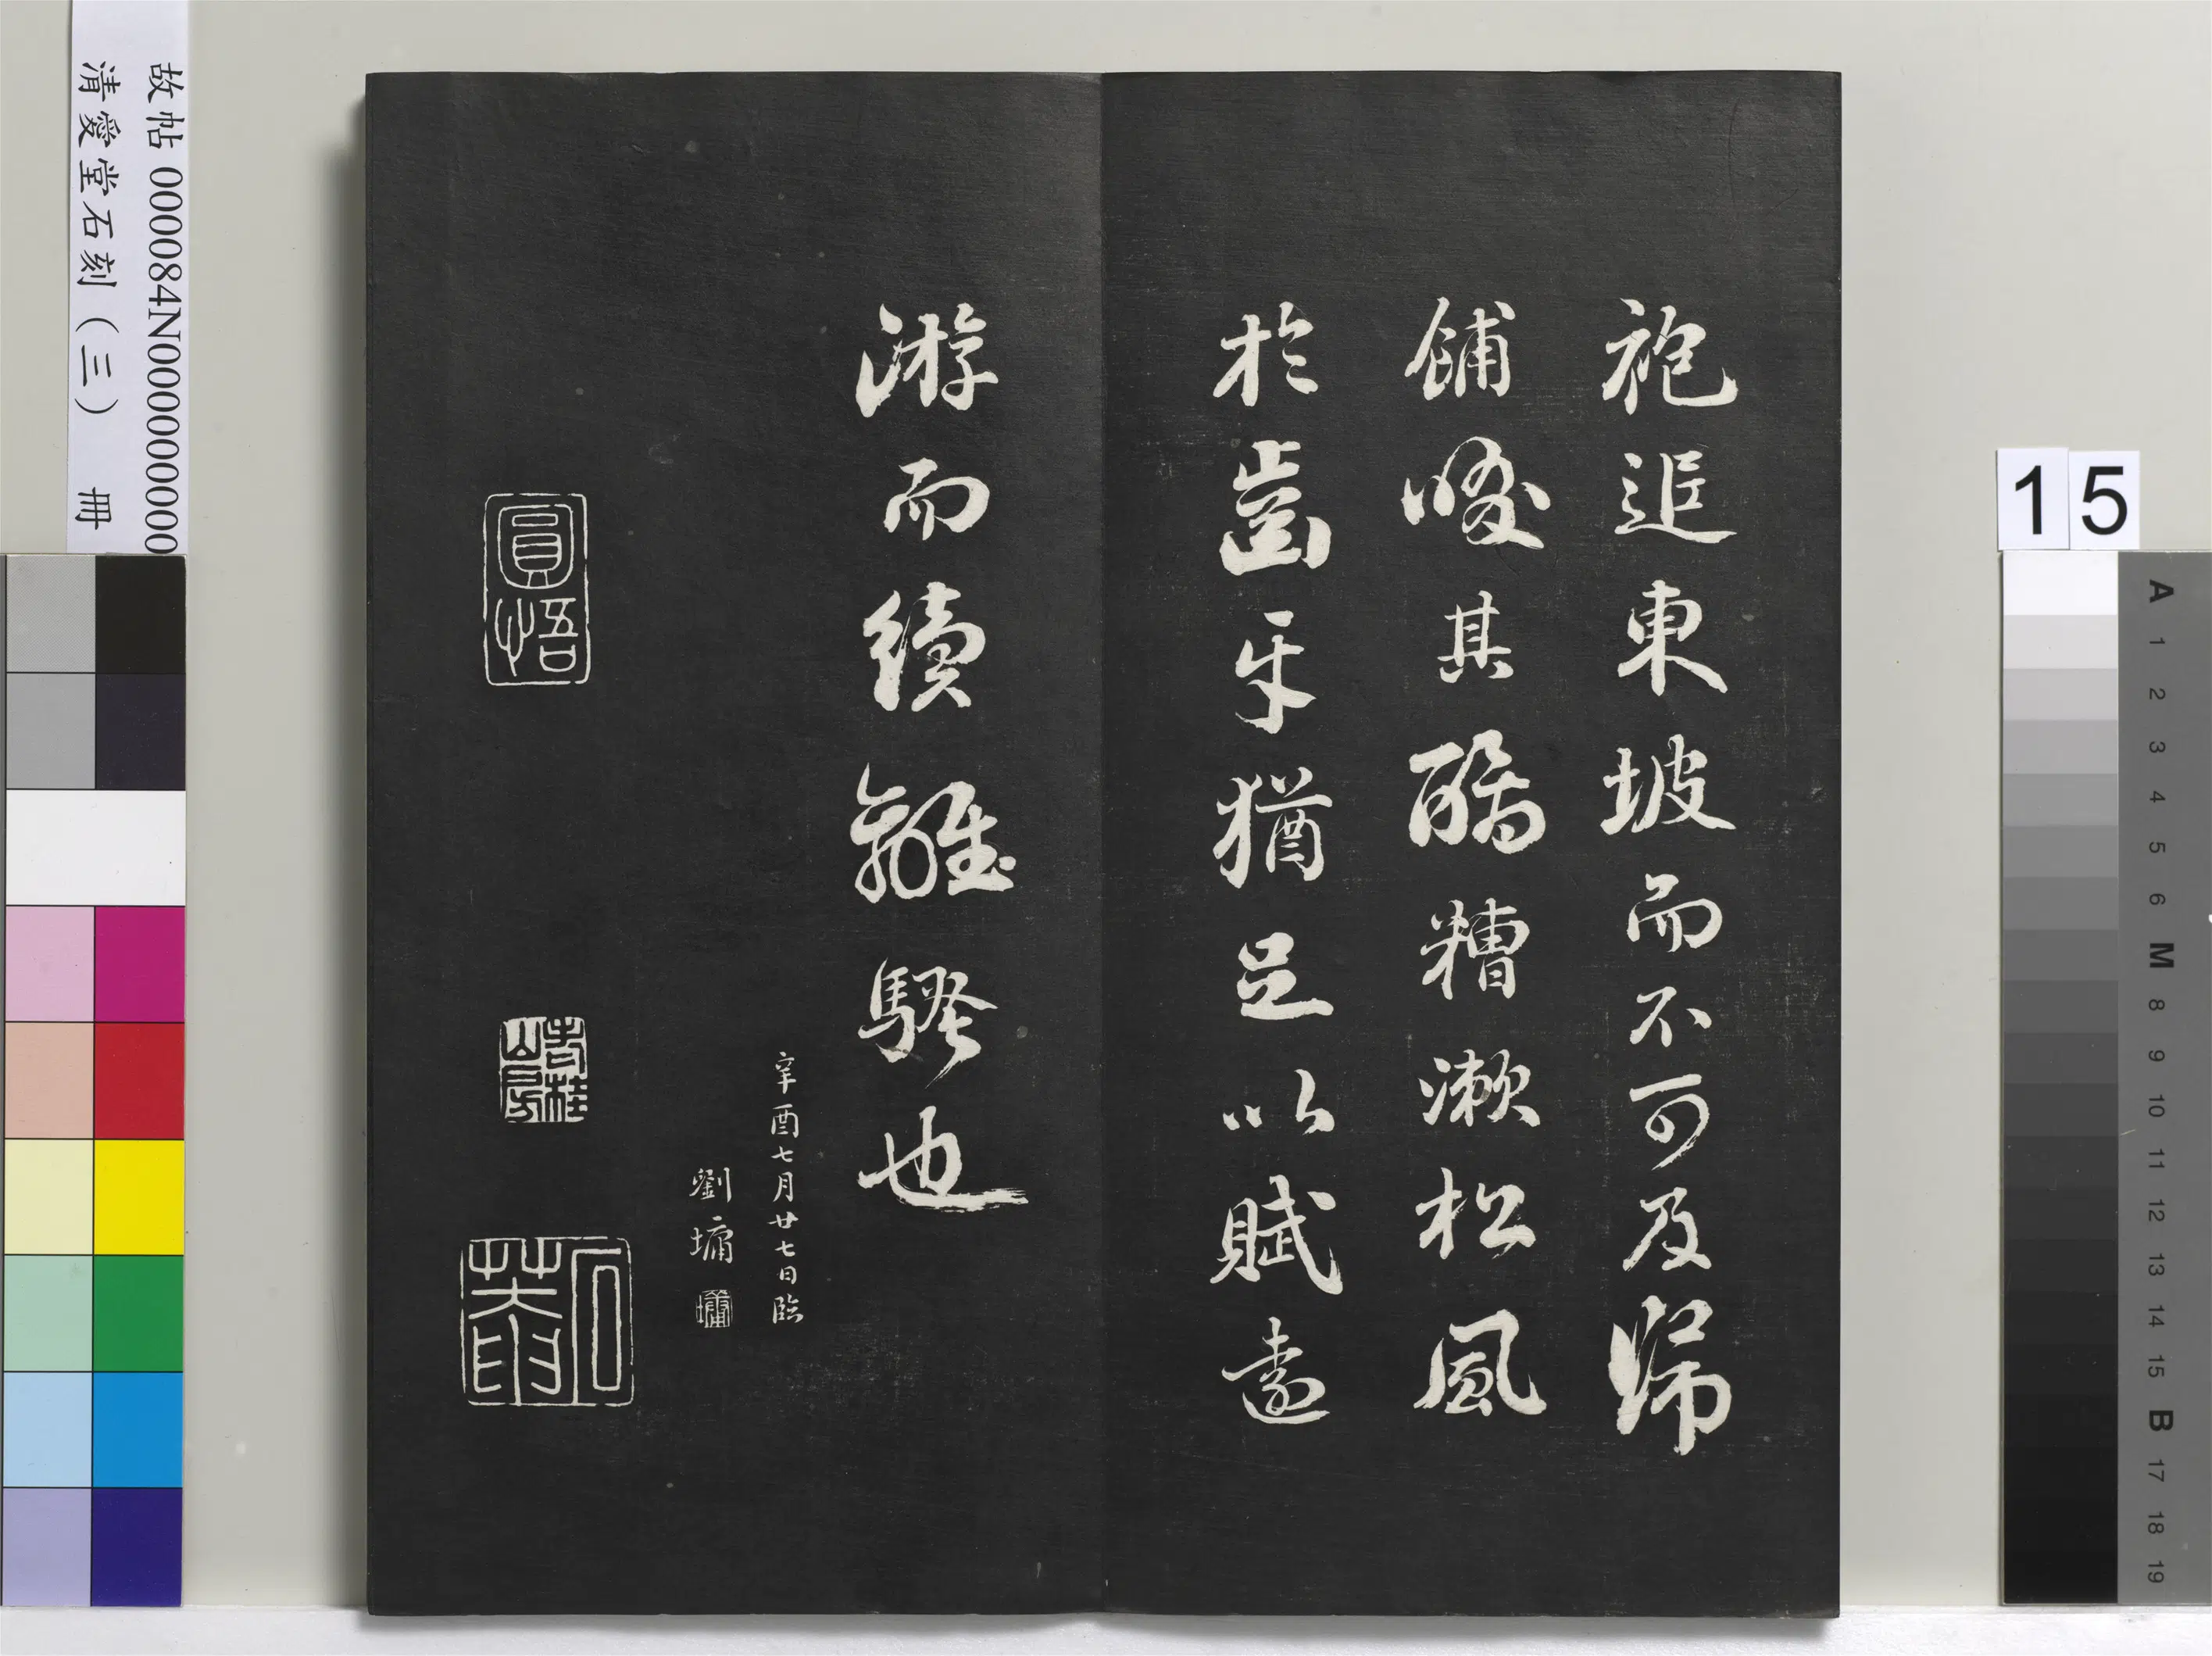 袍追東坡而不可及歸
餔啜其醨糟漱松風
於齒牙猶足以賦遠
游而續離騷也
辛酉七月廿七日臨
劉墉
墉
圓悟
山房
石菴
故帖 000084N000000000
清愛堂石刻（三） 冊
15
A
1
2
3
4
5
6
M
8
9
10
11
12
13
14
15
B
17
18
19